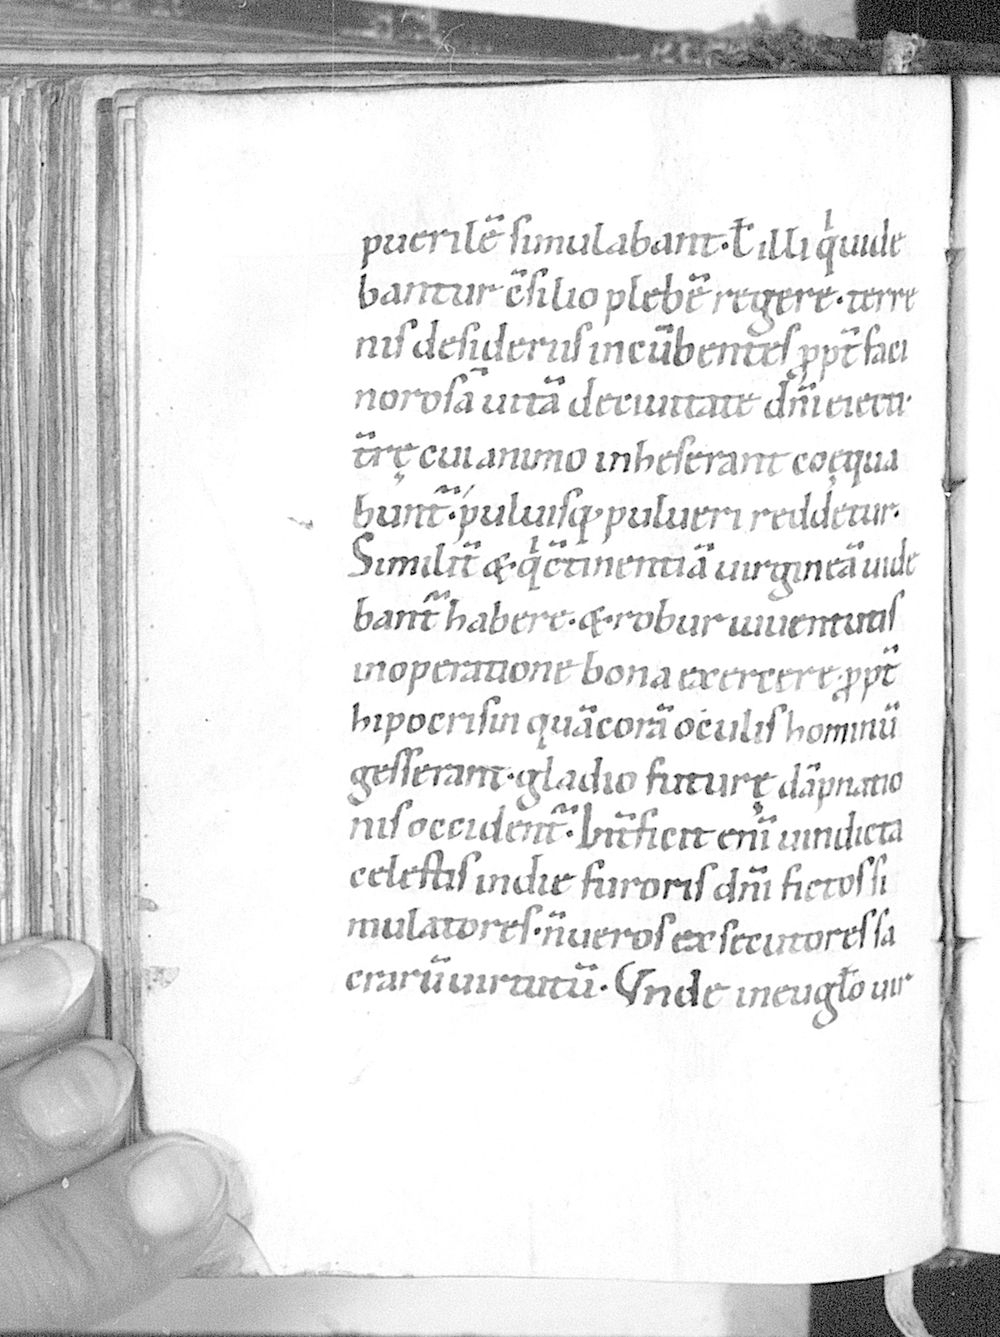 puerilē simulabant· ł illi q̍ uide
bantur c̄silio plebē regere· terre
nis desideriis incūbentes ꝓpt̄ faci
norosā uitā deciuitate dn̄i eiecti·
t̄rę cui animo inheserant coęqua
bunt̄· puluisq; pulueri reddetur·
Similit̄ & q̍ c̄tinentiā uirgineā uide
bant̄ habere· & robur iuuentutis
inoperatione bona exercere· ꝓpt̄
hipocrisin quā corā oculis hominū
gesserant· gladio futurę dāpnatio
nis occident̄· Int̄ficit eni̅ uindicta
celestis indie furoris dn̄i fictos si
mulatores· n̄ ueros exsecutores sa
crarū uirtutū· Vnde ineugło uir